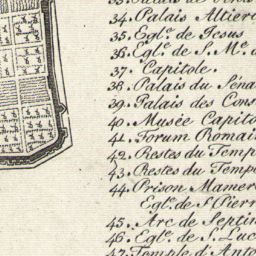 34. Palais Altier
35. Egl.e de Jesus
36. Egl.e de S. M.e d
37. Capitole.
38. Palais du Séna
39. Palais des Cons
40. Musée Capito
41. Forum Romai
42. Restes du Temp
43. Restes du Temp
44. Prison Mamer
Egl.e de S. Pierr
45. Arc de Septim
46. Egl.e de S. Luc
47. Temple d'Anto